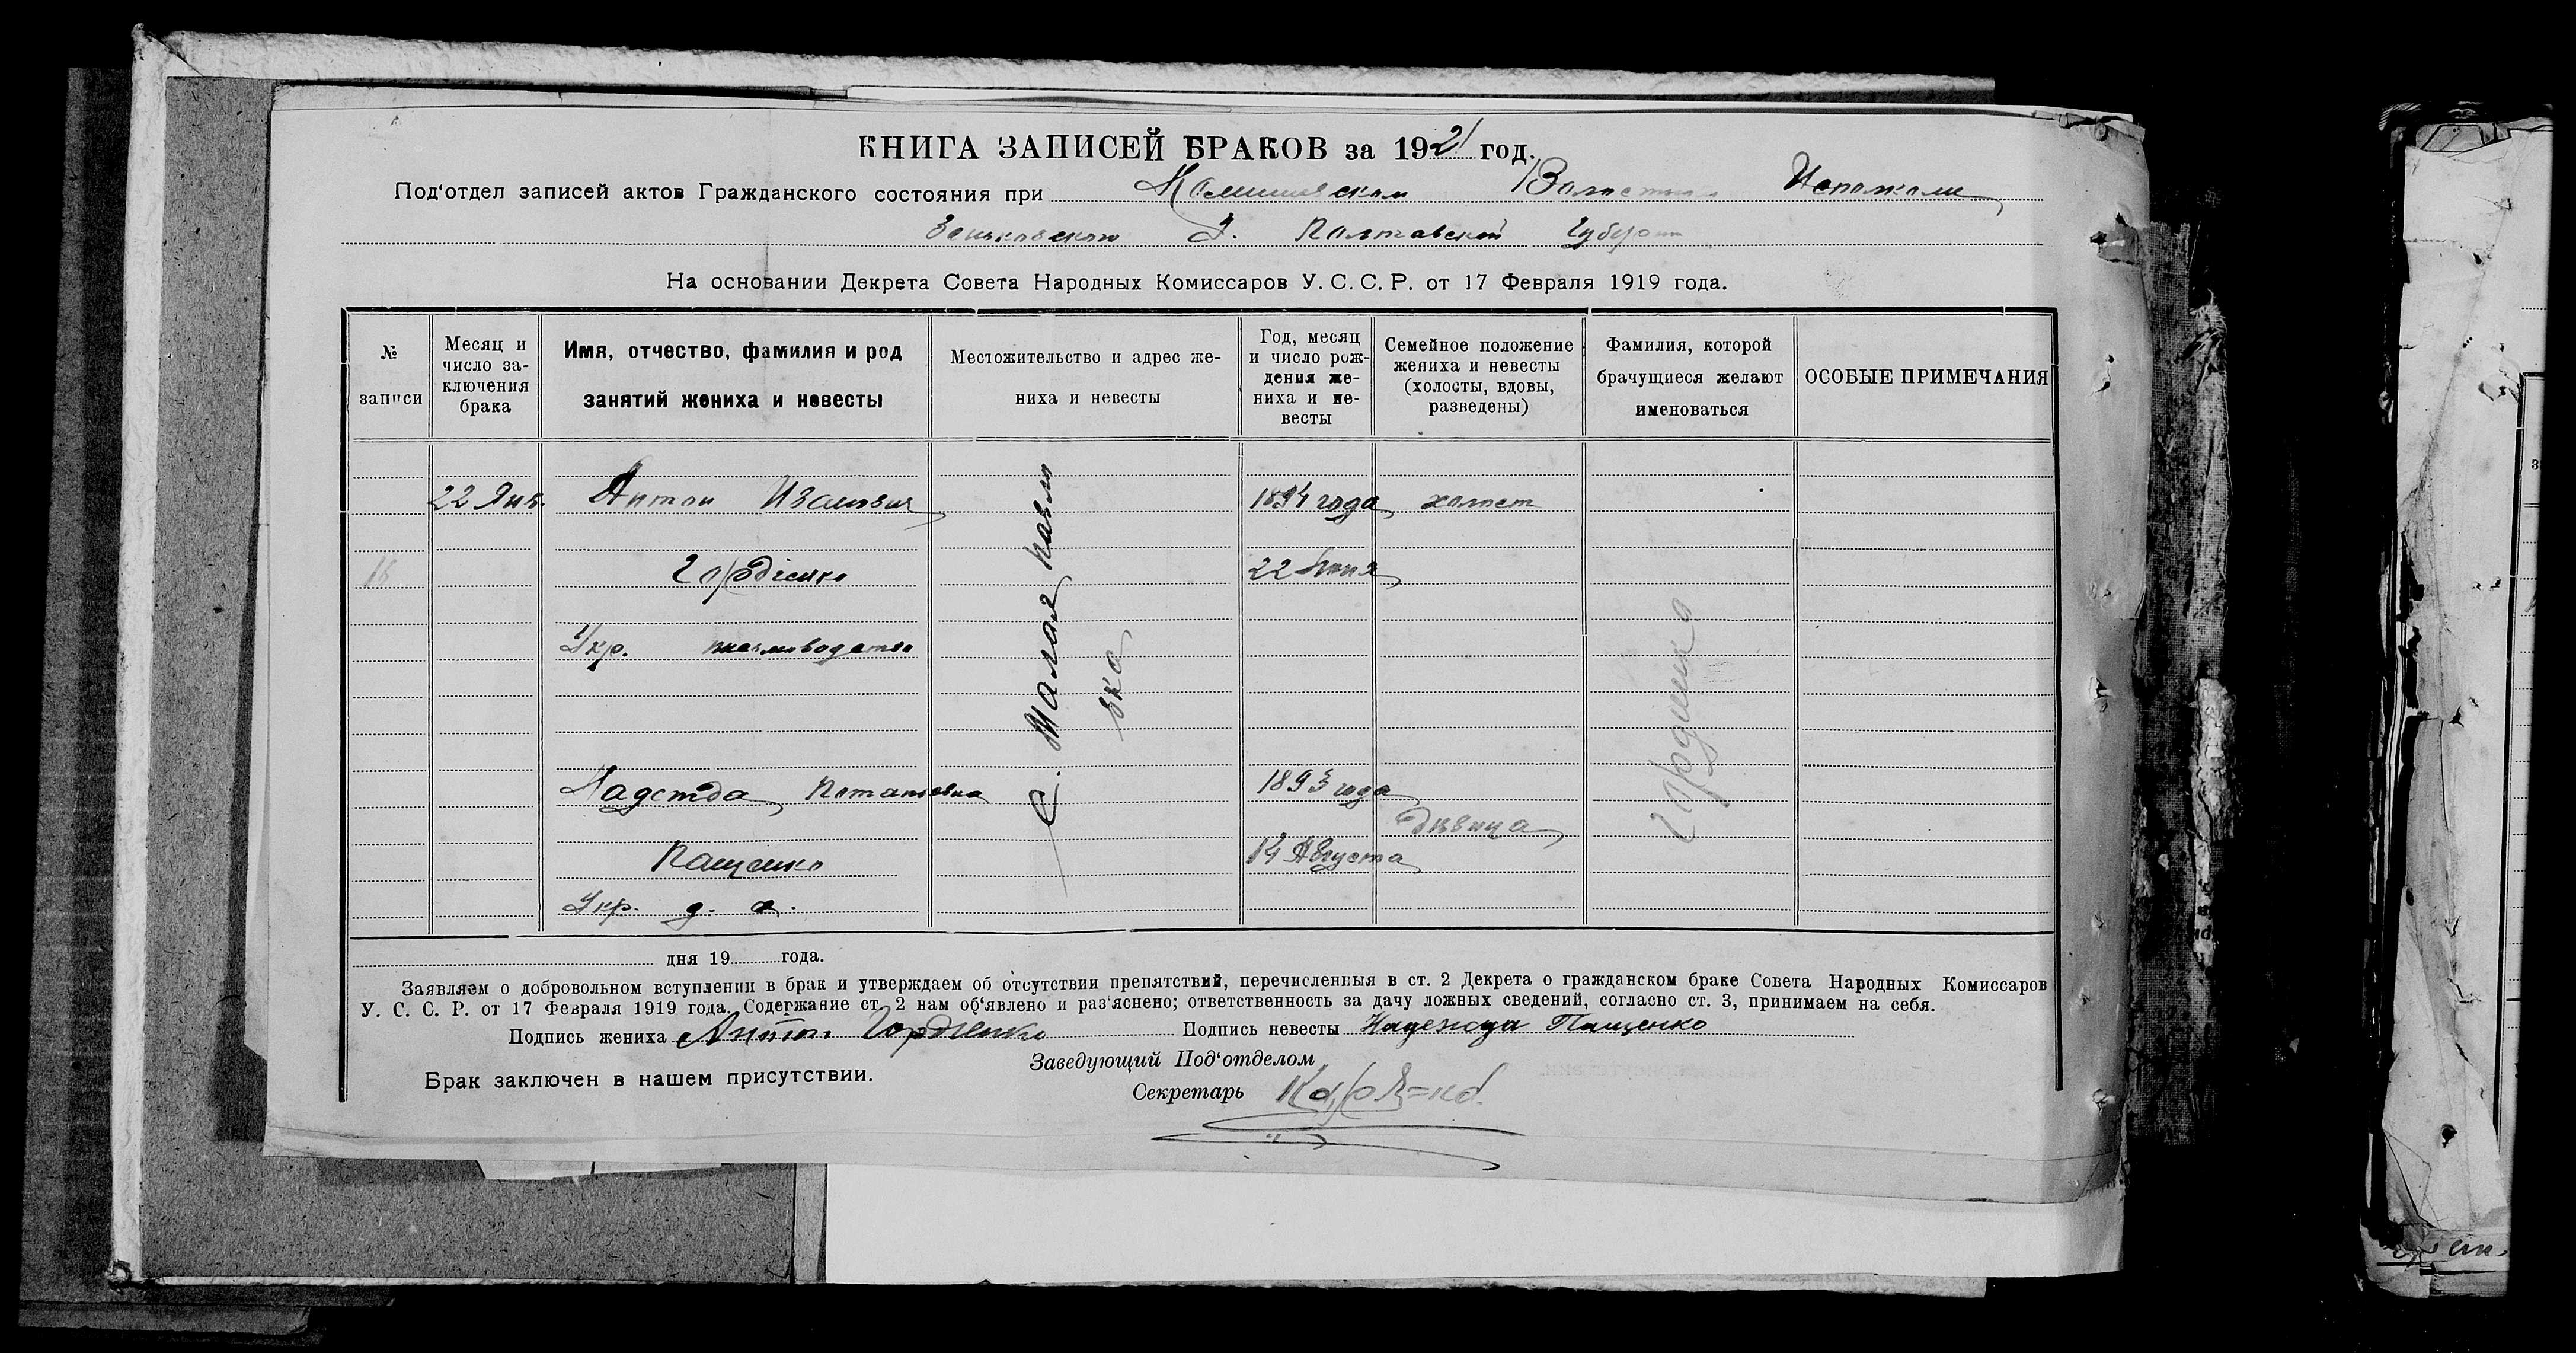 КНИГА ЗАПИСЕЙ БРАКОВ за 1921 год.
Под'отдел записей актов Гражданского состояния при Исполкоме
Зеньковского У. Полтавской Губернии
На основании Декрета Совета Народных Комиссаров У. С. С. Р. от 17 Февраля 1919 года.
№ записи
Месяц и число заключения брака
Имя, отчество, фамилия и род занятий жениха и невесты
Местожительство и адрес жениха и невесты
Год, месяц и число рождения жениха и невесты
Семейное положение жениха и невесты (холосты, вдовы, разведены)
Фамилия, которой брачущиеся желают именоваться
ОСОБЫЕ ПРИМЕЧАНИЯ
22 Янв. Антон Иванович 1894 года холост
18 Гордіенко 22 Июня
Укр. письмоводство
с. Малая Павловка
Гордиенко
Надежда Потаповна 1893 года
дивица
Пащенко 14 Августа
Укр. д. х.
дня 19 года.
Заявляем о добровольном вступлении в брак и утверждаем об отсутствии препятствий, перечисленныя в ст. 2 Декрета о гражданском браке Совета Народных Комиссаров
У. С. С. Р. от 17 Февраля 1919 года. Содержание ст. 2 нам об'явлено и раз'яснено; ответственность за дачу ложных сведений, согласно ст. 3, принимаем на себя.
Подпись жениха Антон Гордіенко Подпись невесты Надежда Пащенко
Заведующий Под'отделом
Брак заключен в нашем присутствии.
Секретарь